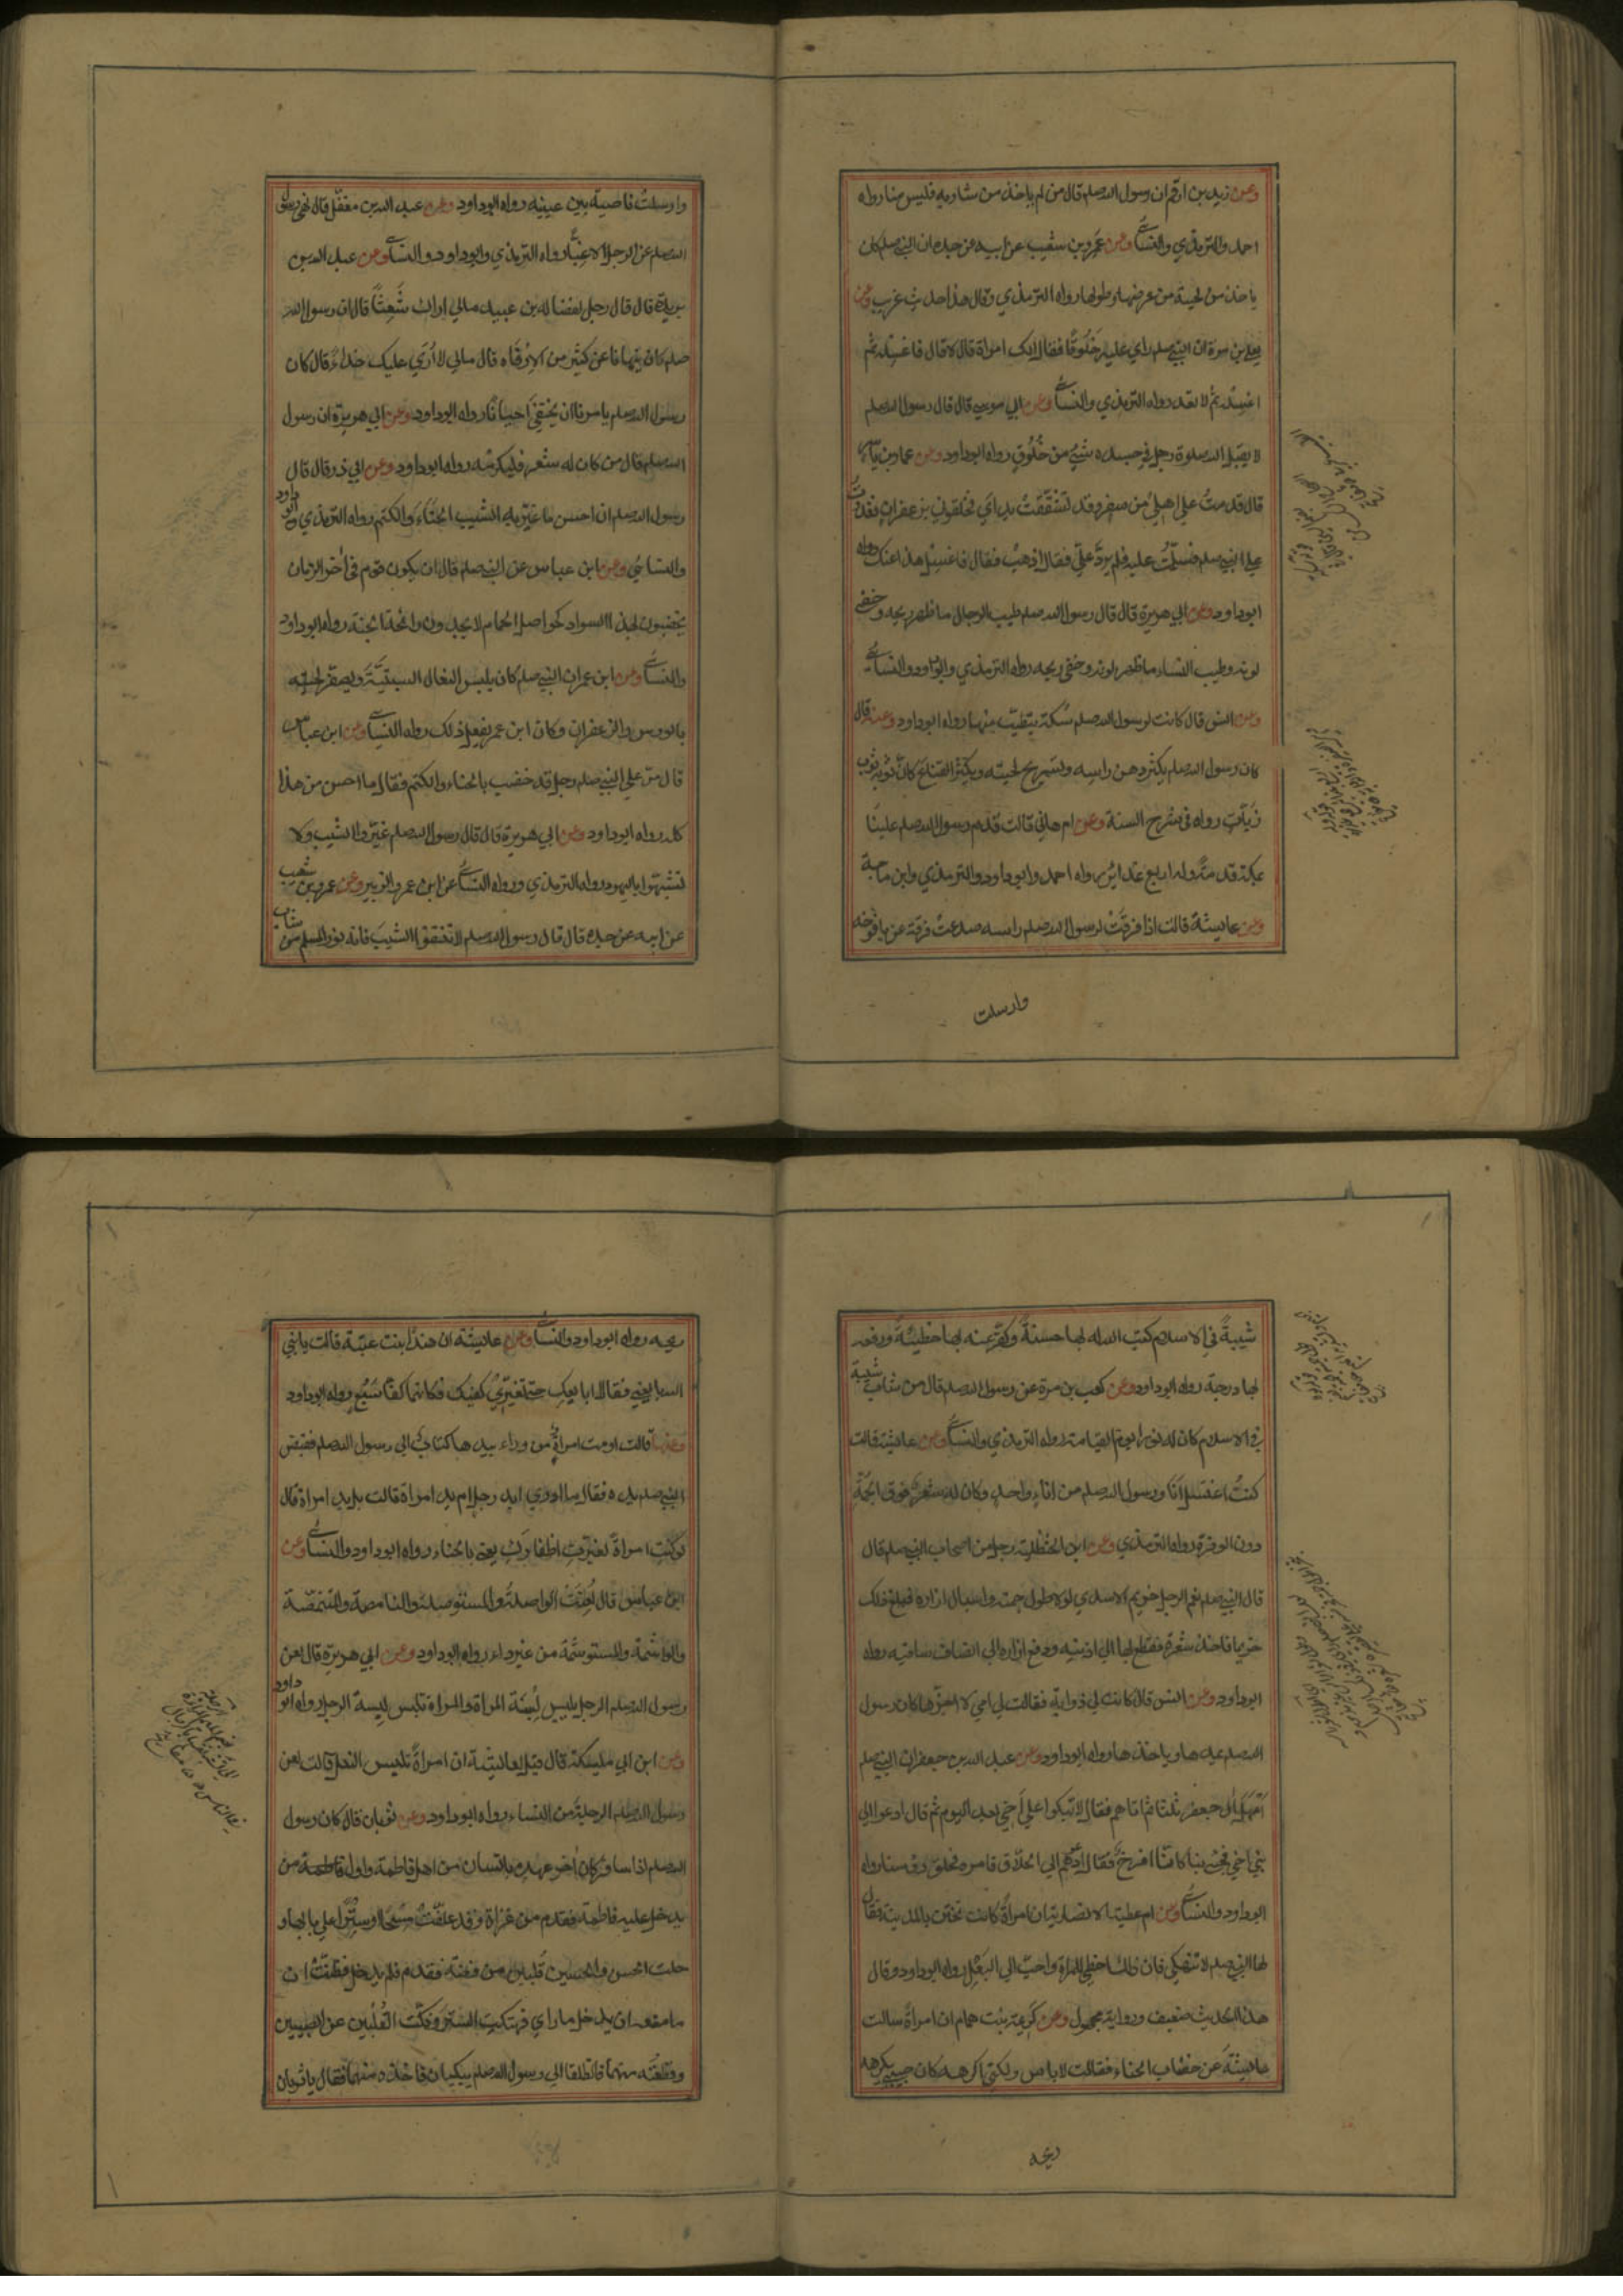 وعن زيد بن ارقم ان رسول الله صلعم قال من لم ياخذ من شاربه فليس منا رواه
احمد والترمذي والنسائي وعن عمرو بن شعيب عن ابيه عن جده ان النبي صلعم كان
ياخذ من لحيته من عرضها وطولها رواه الترمذي وقال هذا حديث غريب وعن
يعلى بن مرة ان النبي صلعم راي عليه خلوقا فقال الك امراة قال لا قال فاغسله ثم
اغسله ثم لا تعد رواه الترمذي والنسائي وعن ابي موسى قال قال رسول الله صلعم
لا يقبل الله صلوة رجل في جسده شيء من خلوق رواه ابوداود وعن عمار بن ياسر
قال قدمت على اهلي من سفر وقد تشققت يداي فخلقوني بزعفران فغدوت
على النبي صلعم فسلمت عليه فلم يرد علي فقال اذهب فقال فاغسل هذا عنك رواه
ابوداود وعن ابي هريرة قال قال رسول الله صلعم طيب الرجال ما ظهر ريحه وخفى
لونه وطيب النساء ما ظهر لونه وخفى ريحه رواه الترمذي وابوداود والنسائي
وعن انس قال كانت لرسول الله صلعم سكة يتطيب منها رواه ابوداود وعنه قال
كان رسول الله صلعم يكثر دهن راسه وتسريح لحيته ويكثر القناع كان ثوبه ثوب
زيات رواه في شرح السنة وعن ام هاني قالت قدم رسول الله صلعم علينا
بمكة قدمة وله اربع غدائر رواه احمد وابوداود والترمذي وابن ماجة
وعن عايشة قالت اذا فرقت لرسول الله صلعم راسه صدعت فرقه عن يافوخه
وارسلت
وارسلت ناصيته بين عينيه رواه ابوداود وعن عبد الله بن مغفل قال نهى رسول
الله صلعم عن الترجل الا غبا رواه الترمذي وابوداود والنسائي وعن عبد الله بن
بريدة قال قال رجل لفضالة بن عبيد مالي اراك شعثا قال ان رسول الله
صلعم كان ينهانا عن كثير من الارفاه قال مالي لا اري عليك حذاء قال كان
رسول الله صلعم يامرنا ان نحتفي احيانا رواه ابوداود وعن ابي هريرة ان رسول
الله صلعم قال من كان له شعر فليكرمه رواه ابوداود وعن ابي ذر قال قال
رسول الله صلعم ان احسن ما غير به الشيب الحناء والكتم رواه الترمذي وابو داود
والنسائي وعن ابن عباس عن النبي صلعم قال ان يكون قوم في آخر الزمان
يخضبون بهذا السواد كحواصل الحمام لا يجدون رائحة الجنة رواه ابوداود
والنسائي وعن ابن عمر ان النبي صلعم كان يلبس النعال السبتية ويصفر لحيته
بالورس والزعفران وكان ابن عمر يفعل ذلك رواه النسائي وعن ابن عباس
قال مر على النبي صلعم رجل قد خضب بالحناء والكتم فقال ما احسن من هذا
كله رواه ابوداود وعن ابي هريرة قال قال رسول الله صلعم غيروا الشيب ولا
تشبهوا باليهود رواه الترمذي ورواه النسائي عن ابن عمر والزبير وعن عمرو بن شعيب
عن ابيه عن جده قال قال رسول الله صلعم لا تنتفوا الشيب فانه نور المسلم من شاب
شيبة في الاسلام كتب الله له بها حسنة وكفر عنه بها خطيئة ورفعه
بها درجة رواه ابوداود وعن كعب بن مرة عن رسول الله صلعم قال من شاب شيبة
في الاسلام كان له نورا يوم القيامة رواه الترمذي والنسائي وعن عايشة قالت
كنت اغتسل انا ورسول الله صلعم من اناء واحد وكان له شعر فوق الجمة
دون الوفرة رواه الترمذي وعن ابن الحنظلية رجل من اصحاب النبي صلعم قال
قال النبي صلعم نعم الرجل خريم الاسدي لولا طول جمته واسبال ازاره فبلغ ذلك
خريما فاخذ شفرة فقطع بها الى اذنيه ورفع ازاره الى انصاف ساقيه رواه
ابوداود وعن انس قال كانت لي ذوابة فقالت لي امي لا اجزها كان رسول
الله صلعم يمدها وياخذها رواه ابوداود وعن عبد الله بن جعفر ان النبي صلعم
امهل ال جعفر ثلثا ثم اتاهم فقال لا تبكوا على اخي بعد اليوم ثم قال ادعوا لي
بني اخي فجئ بنا كاننا افرخ فقال ادعو لي الحلاق فامره فحلق رؤسنا رواه
ابوداود والنسائي وعن ام عطية الانصارية ان امراة كانت تختن بالمدينة فقال
لها النبي صلعم لا تنهكي فان ذلك احظى للمراة واحب الى البعل رواه ابوداود وقال
هذا الحديث ضعيف وروايه مجهول وعن كريمة بنت همام ان امراة سالت
عايشة عن خضاب الحناء فقالت لا باس ولكني اكرهه كان حبيبي يكره
ريحه
ريحه رواه ابوداود والنسائي وعن عايشة ان هندا بنت عتبة قالت يا نبي
الله بايعني فقال لا ابايعك حتى تغيري كفيك فكانهما كفا سبع رواه ابوداود
وعنها قالت اومت امراة من وراء ستر بيدها كتاب الى رسول الله صلعم فقبض
النبي صلعم يده فقال ما ادري ايد رجل ام يد امراة قالت بل يد امراة قال
لو كنت امراة لغيرت اظفارك يعني بالحناء رواه ابوداود والنسائي وعن
ابن عباس قال لعنت الواصلة والمستوصلة والنامصة والمتنمصة
والواشمة والمستوشمة من غير داء رواه ابوداود وعن ابي هريرة قال لعن
رسول الله صلعم الرجل يلبس لبسة المراة والمراة تلبس لبسة الرجل رواه ابو داود
وعن ابن ابي مليكة قال قيل لعايشة ان امراة تلبس النعل قالت لعن
رسول الله صلعم الرجلة من النساء رواه ابوداود وعن ثوبان قال كان رسول
الله صلعم اذا سافر كان آخر عهده بانسان من اهل فاطمة واول فاطمة من
يدخل عليه فاطمة فقدم من غزاة وقد علقت مسحا او سترا على بابها و
حلت الحسن والحسين قلبين من فضة فقدم فلم يدخل فظنت ان
ما منعه ان يدخل ما راي فهتكت الستر وفكت القلبين عن الصبيين
وقطعته منهما فانطلقا الى رسول الله صلعم يبكيان فاخذه منهما فقال يا ثوبان